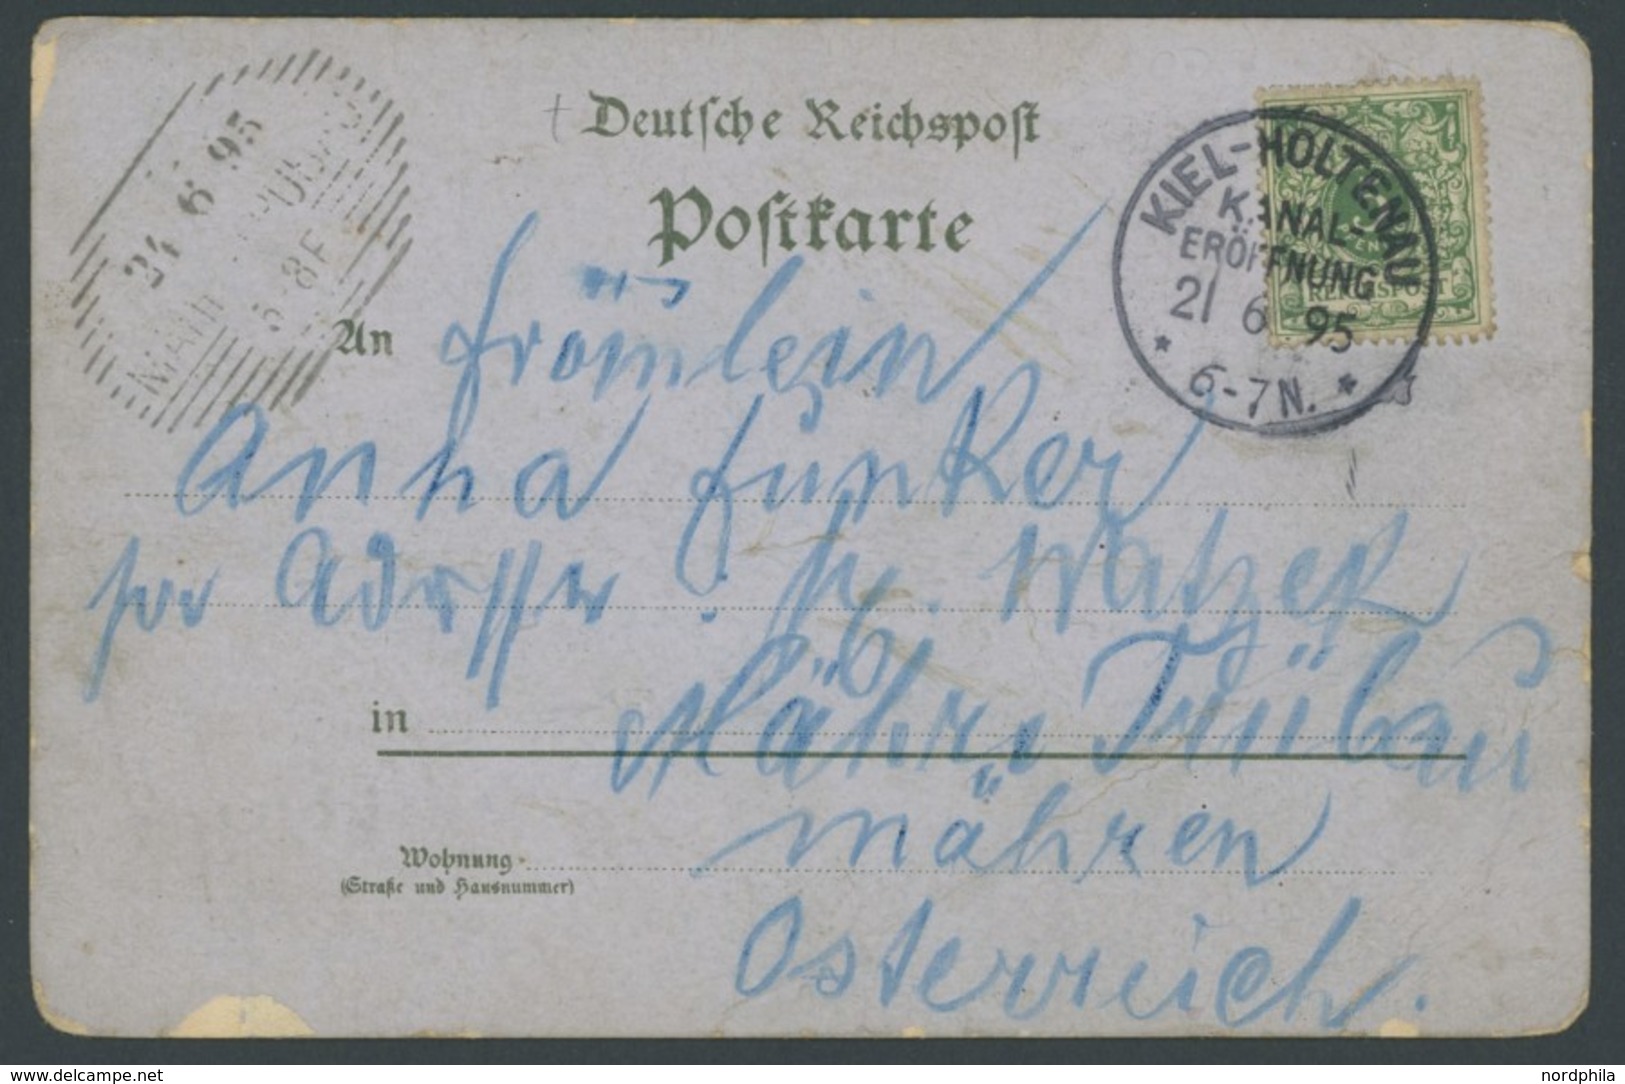 Deutsche Reichspost
Postkarte
24 6 95
8F
KIEL-HOLTENAU
KANAL-
ERÖFFNUNG
21 6 95
* 6-7N. *
REICHSPOST
An Fräulein
Anna Funker
per Adresse
Mähr. Trübau
in
Mähren
Wohnung
(Straße und Hausnummer)
Österreich.
www.delcampe.net
nordphila